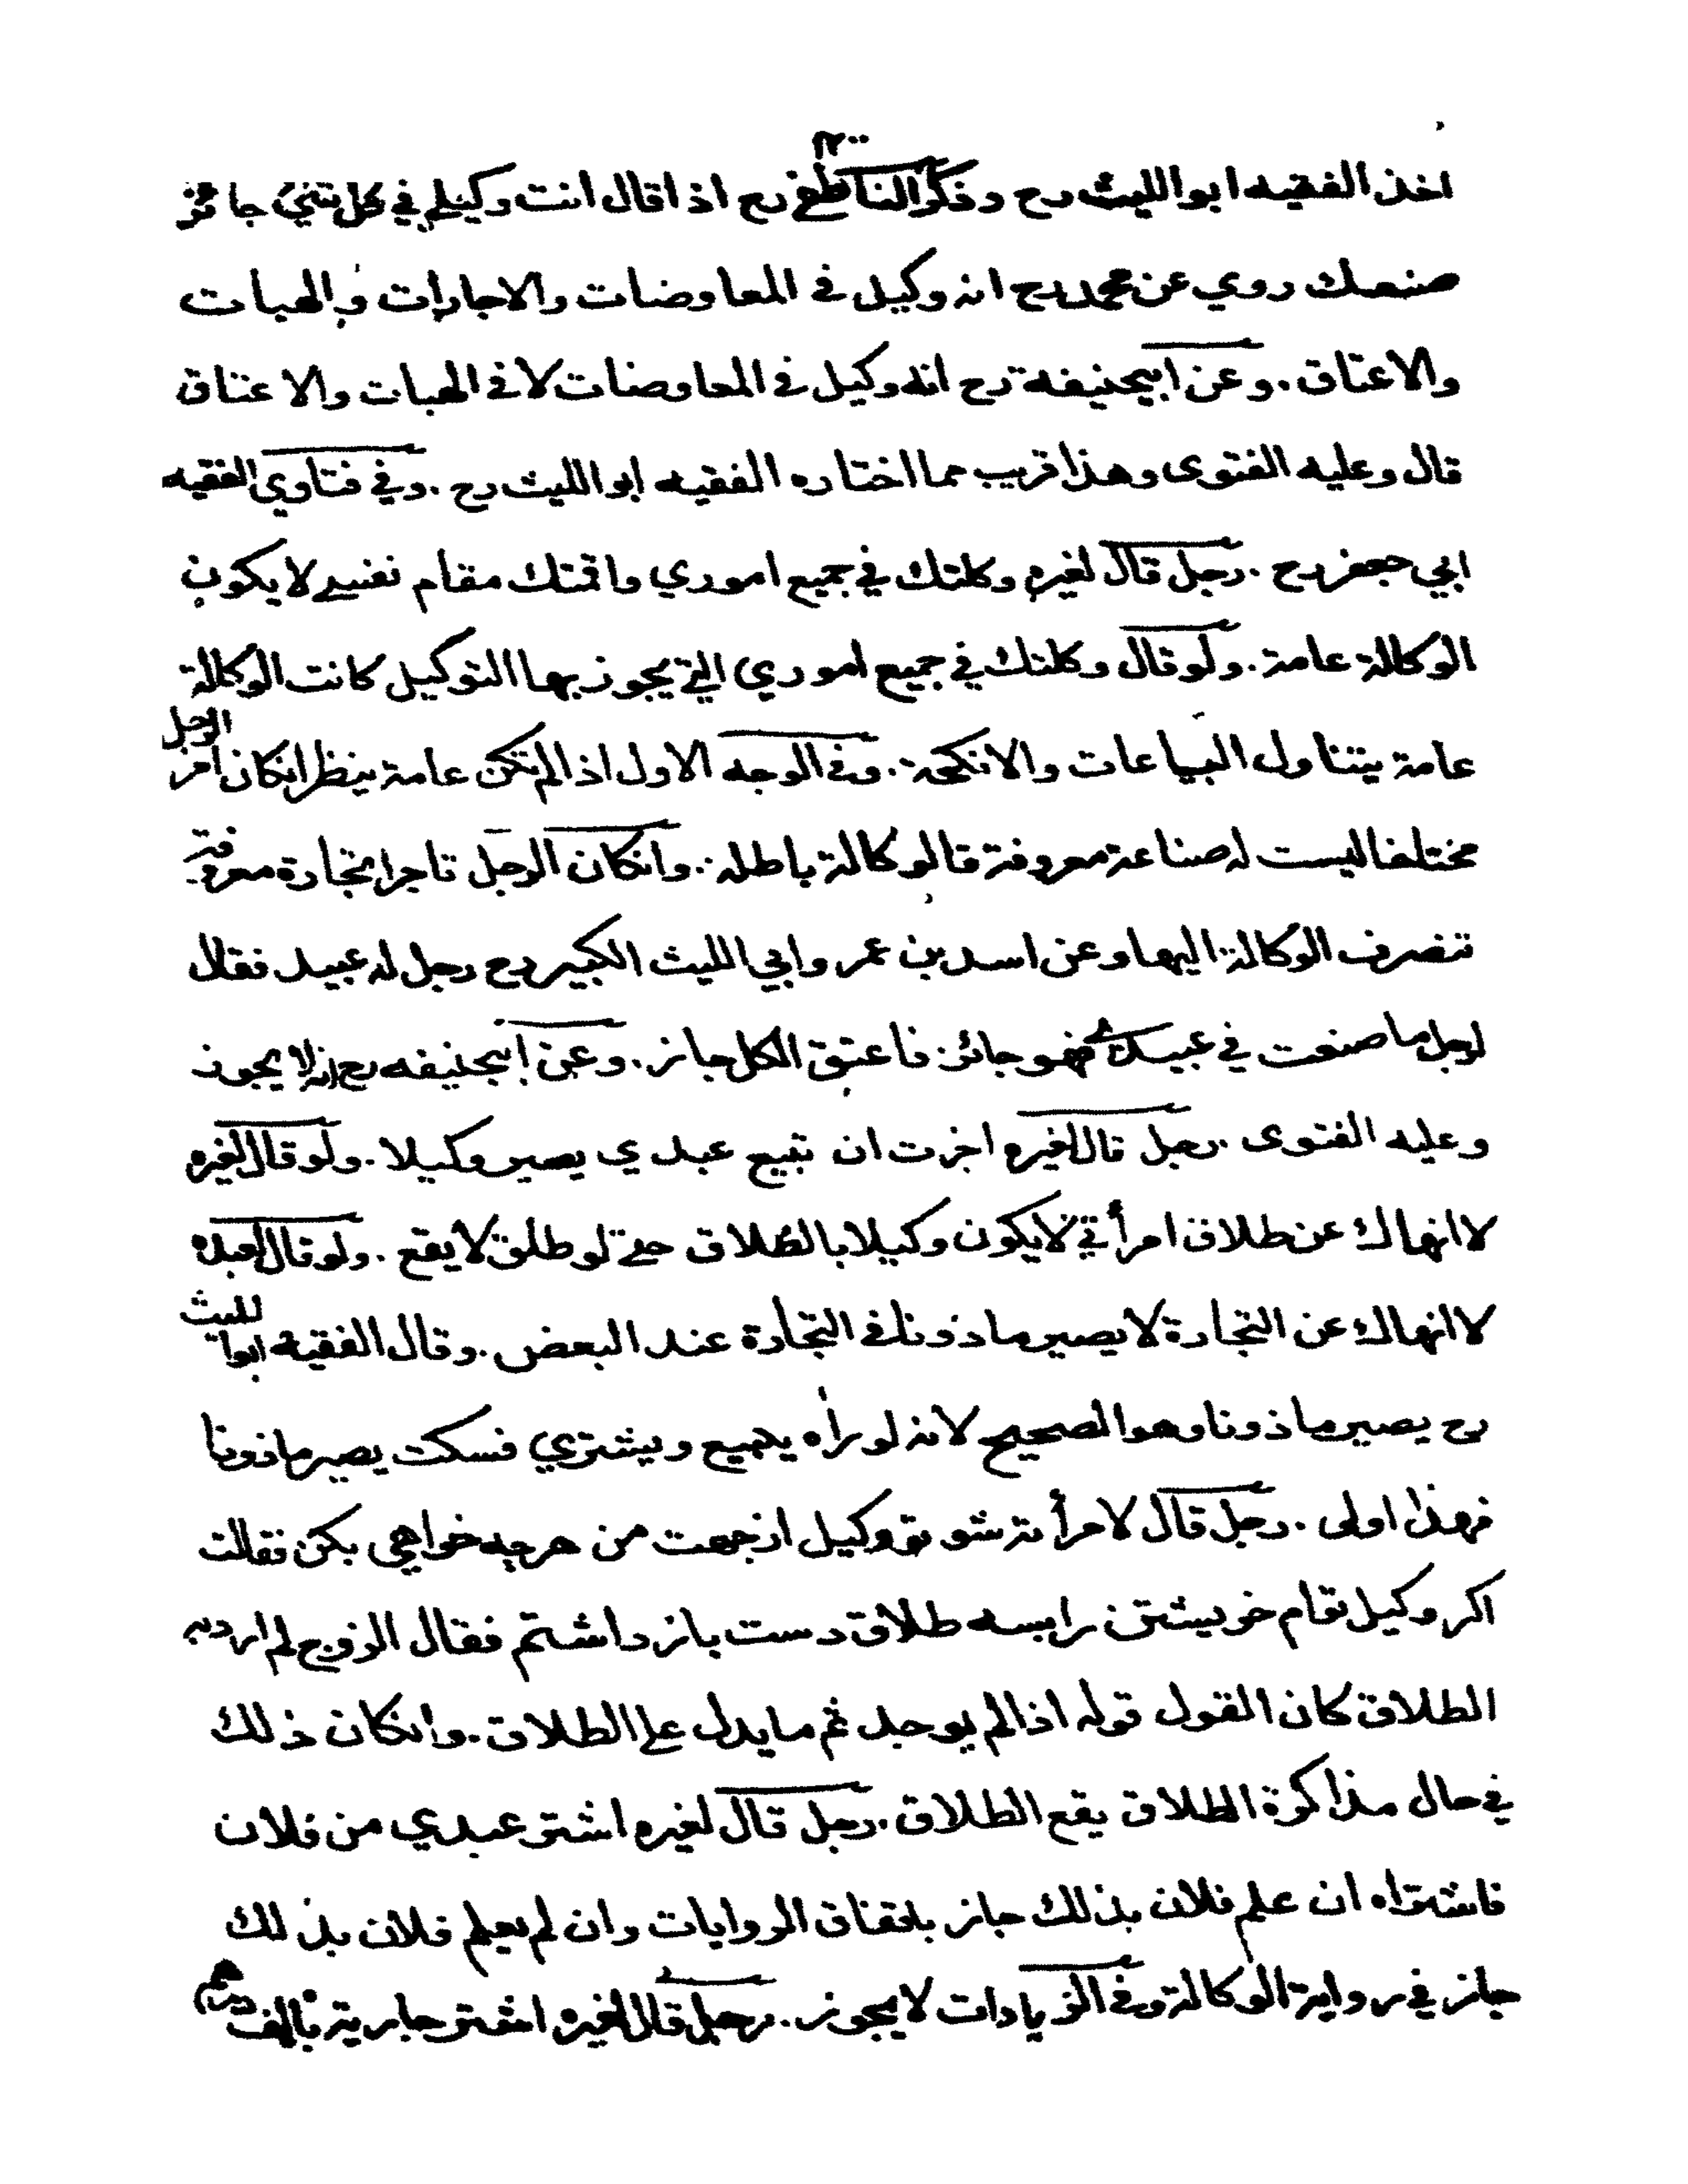 اخذ الفقيه ابو الليث رح وذكر الناطفي رح اذا قال انت وكيلي في كل شيء جائز
صنعك روي عن محمد رح انه وكيل في المعاوضات والاجارات والهبات
والاعتاق . وعن ابيحنيفة رح انه وكيل في المعاوضات لا في الهبات والاعتاق
قال وعليه الفتوى وهذا قريب مما اختاره الفقيه ابو الليث رح . وفي فتاوي الفقيه
ابي جعفر رح . رجل قال لغيره وكلتك في جميع اموري واقمتك مقام نفسي لا يكون
الوكالة عامة . ولو قال وكلتك في جميع اموري التي يجوز بها التوكيل كانت الوكالة
عامة يتناول البياعات والانكحة . وفي الوجه الاول اذا لم تكن عامة ينظر انكان امر الرجل
مختلفا ليست له صناعة معروفة فالوكالة باطلة . وانكان الرجل تاجرا تجارة معروفة
تنصرف الوكالة اليها وعن اسد بن عمر وابي الليث الكبير رح رجل له عبيد فقال
لرجل ما صنعت في عبيدي فهو جائز فاعتق الكل جاز . وعن ابيحنيفه رح انه لا يجوز
وعليه الفتوى . رجل قال لغيره اجزت ان تبيع عبدي يصير وكيلا . ولو قال لغيره
لا انهاك عن طلاق امرأتي لا يكون وكيلا بالطلاق حتى لو طلق لا يقع . ولو قال لعبده
لا انهاك عن التجارة لا يصير ماذونا في التجارة عند البعض . وقال الفقيه ابو الليث
رح يصير ماذونا وهو الصحيح لانه لو رأه يبيع ويشتري فسكت يصير ماذونا
فهذا اولى . رجل قال لامرأته شو تو وكيل از جهت من هرچه خواهي بكن فقالت
اكر وكيل توام خويشتن را بسه طلاق دست باز داشتم فقال الزوج لم ارد به
الطلاق كان القول قوله اذا لم يوجد ثم ما يدل على الطلاق . وانكان ذلك
في حال مذاكرة الطلاق يقع الطلاق . رجل قال لغيره اشتر عبدي من فلان
فاشتراه ان علم فلان بذلك جاز باتفاق الروايات وان لم يعلم فلان بذلك
جاز في رواية الوكالة وفي الزيادات لا يجوز . رجل قال لغيره اشتر جارية بالف درهم